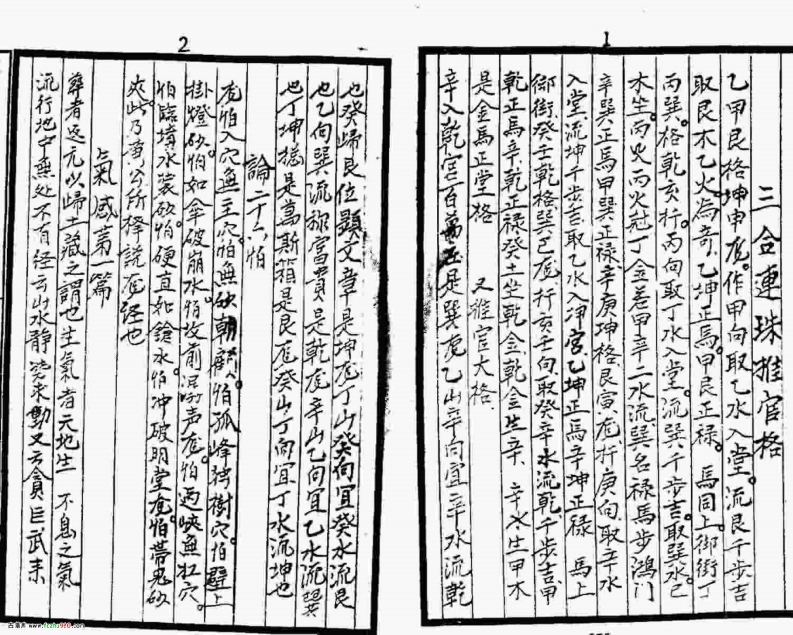 1
三合連珠推官格
乙甲艮格坤申龙。作甲向取乙水入堂。流艮千步吉
取艮木乙火為奇。乙坤正馬。甲艮正禄。馬同上御街丁
丙巽。格乾亥行。丙向取丁水入堂。流巽千步吉。取巽水己
木生。丙火丙火尅丁金。若甲辛二水流巽名禄馬步鴻门
辛巽正馬甲巽正禄辛庚坤格。艮寅龙行庚向取辛水
入堂。流坤千步吉取乙水入坤宮。乙坤正馬辛坤正禄 馬上
御街。癸壬乾格巽巳龙行亥壬向。取癸辛水流乾千步吉甲
乾正馬辛。乾正禄癸土坐乾金。乾金生辛 辛水生甲木
是金馬正堂格 又推官大格
辛入乾宮百萬庄是巽龙乙山辛向宜辛水流乾
2
也癸歸艮位顯文章是坤龙丁山癸向宜癸水流艮
也乙向巽流雅富貴是乾龙辛山乙向宜乙水流巽
也丁坤終是萬斯箱是艮龙癸山丁向宜丁水流坤也
論二十八怕
龙怕入穴無主穴怕無砂朝顧。怕孤峰独樹穴。怕壁上
掛燈砂怕如傘破崩水怕坟前声龙。怕両峡無扛穴。
怕臨墳水裝砂。怕硬直如鎗水。怕冲破明堂龙怕帶鬼砂
夾此乃前公所択説龙経也
氣感第一篇
葬者返元以歸土藏之謂也生氣者天地生 不息之氣
流行地中無处不有経云山水静姿求動又云貪巨武来
古籍网 www.